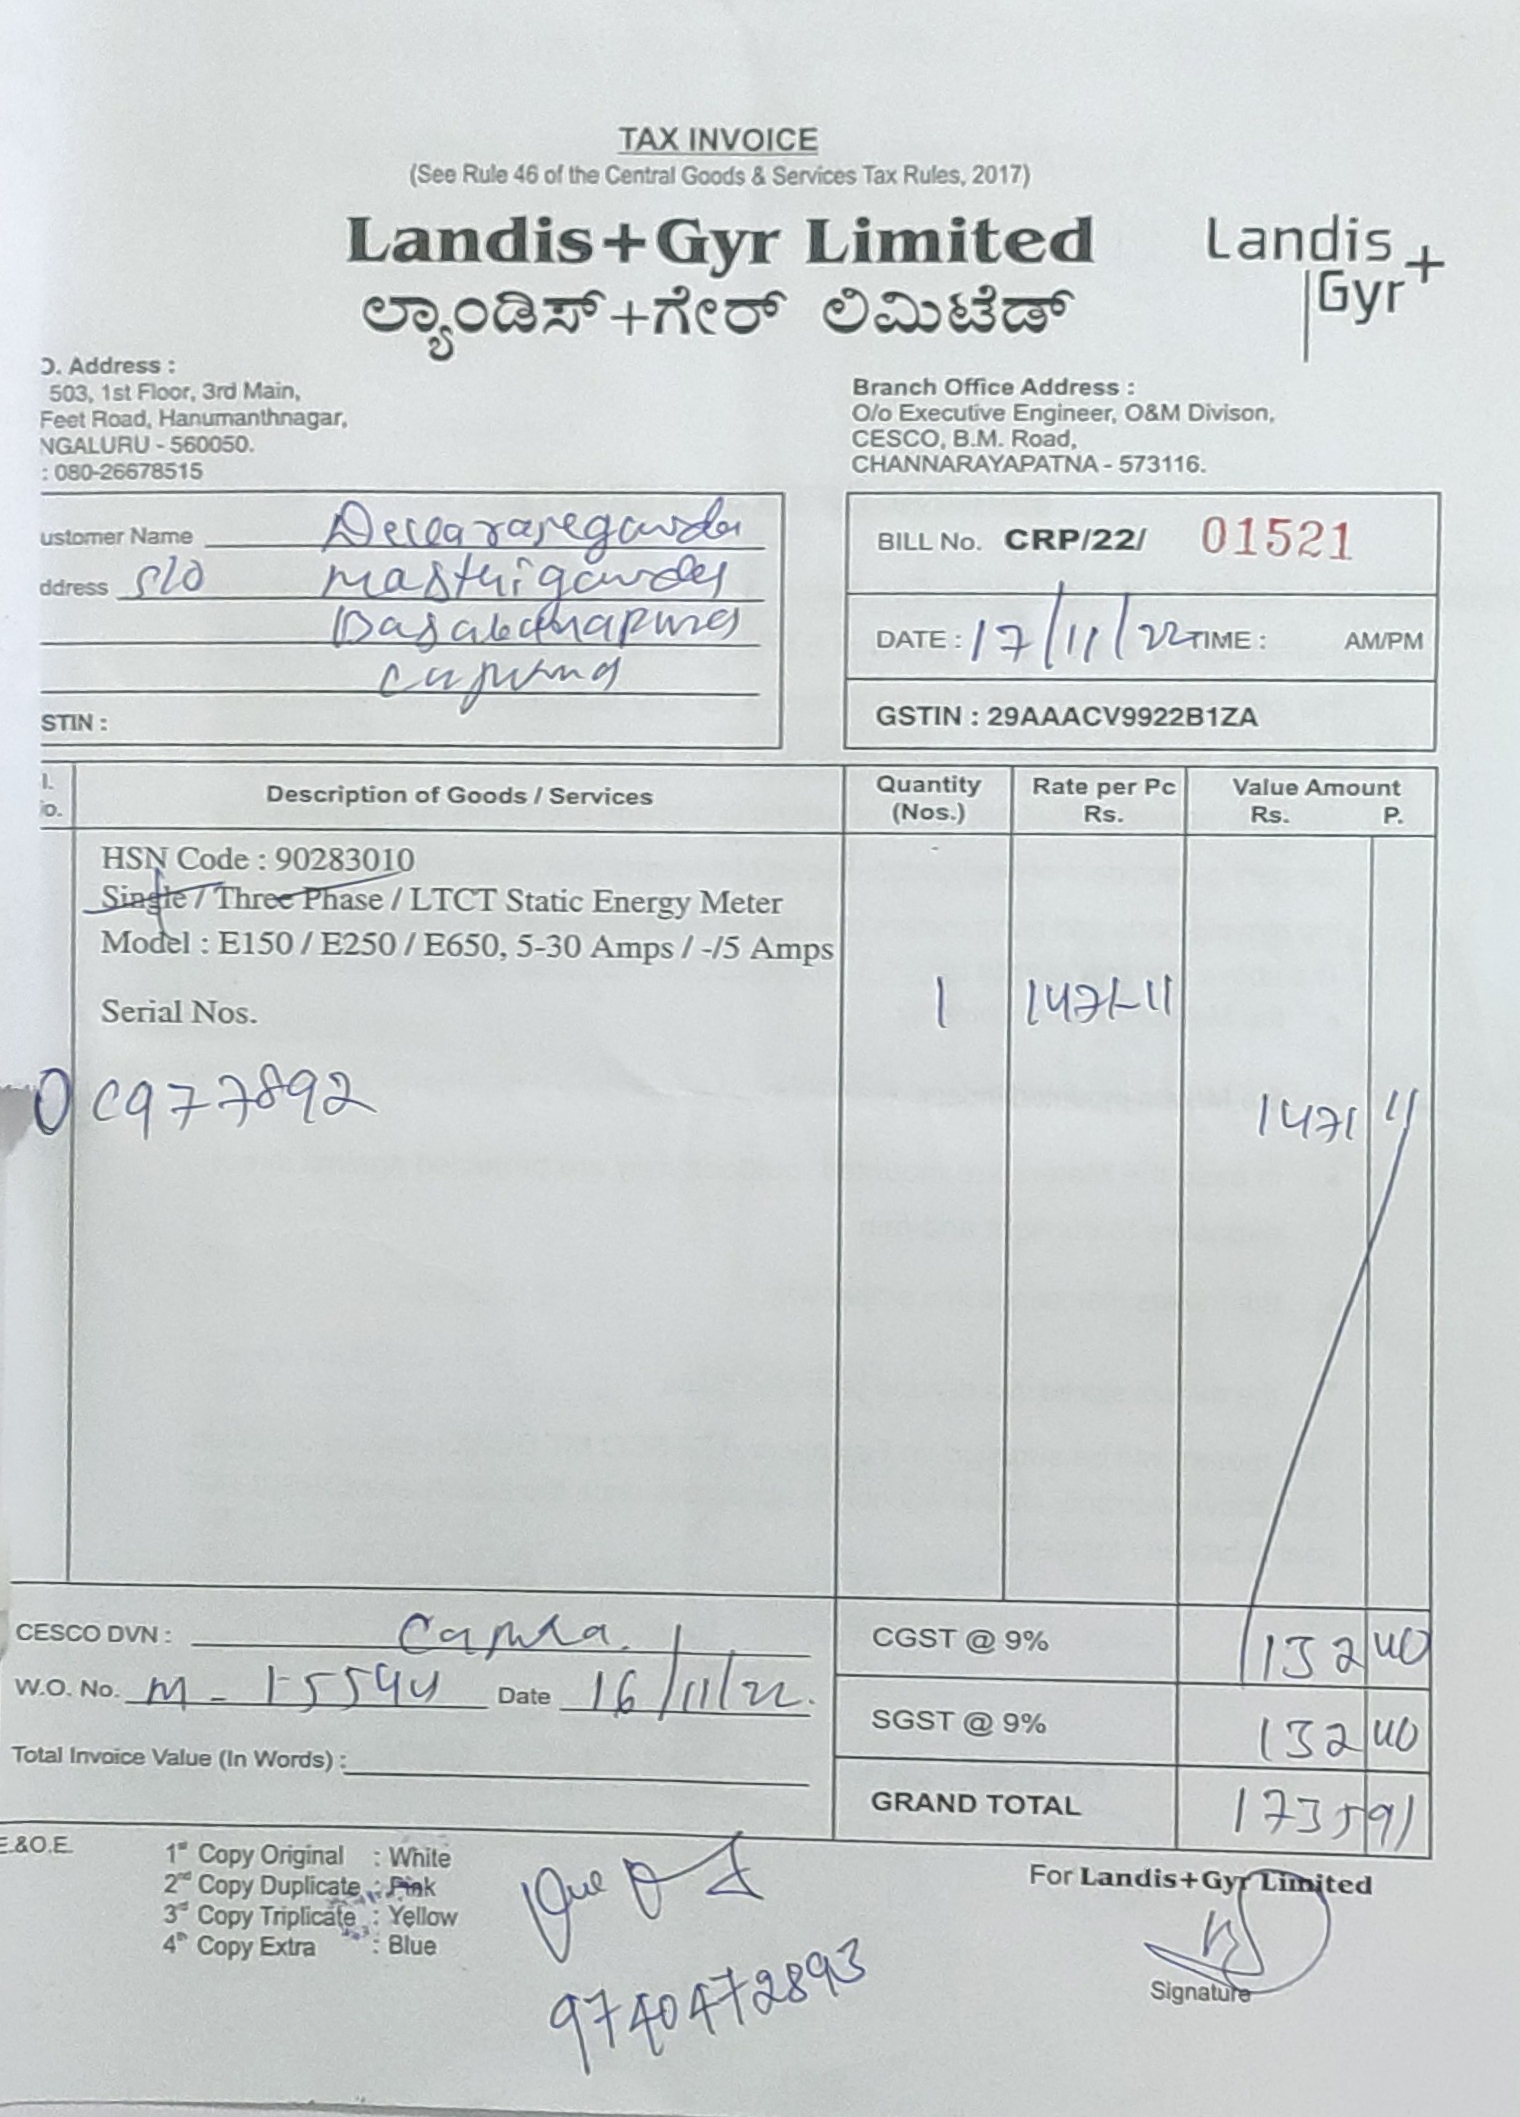 TAX INVOICE
(See Rule 46 of the Central Goods & Services Tax Rules, 2017)
Landis+Gyr Limited
ಲ್ಯಾಂಡಿಸ್+ಗೇರ್ ಲಿಮಿಟೆಡ್
Landis+
Gyr
O. Address :
503, 1st Floor, 3rd Main,
Feet Road, Hanumanthnagar,
NGALURU - 560050.
: 080-26678515
Branch Office Address :
O/o Executive Engineer, O&M Divison,
CESCO, B.M. Road,
CHANNARAYAPATNA - 573116.
ustomer Name
ddress S/O Masthigowda
STIN :
BILL No. CRP/22/ 01521
DATE : 17/11/22 TIME : AM/PM
GSTIN : 29AAACV9922B1ZA
l. Description of Goods / Services Quantity Rate per Pc Value Amount
o. (Nos.) Rs. Rs. P.
HSN Code : 90283010
Single / Three Phase / LTCT Static Energy Meter
Model : E150 / E250 / E650, 5-30 Amps / -/5 Amps
Serial Nos. 1 1471-11
C977892 1471 11
CESCO DVN :
CGST @ 9% 132 40
W.O. No. Date 16/11/22.
SGST @ 9% 132 40
Total Invoice Value (In Words) :
GRAND TOTAL 1735 91
E.&O.E.
1st Copy Original : White
2nd Copy Duplicate : Pink
3rd Copy Triplicate : Yellow
4th Copy Extra : Blue
For Landis+Gyr Limited
Signature
9740472893